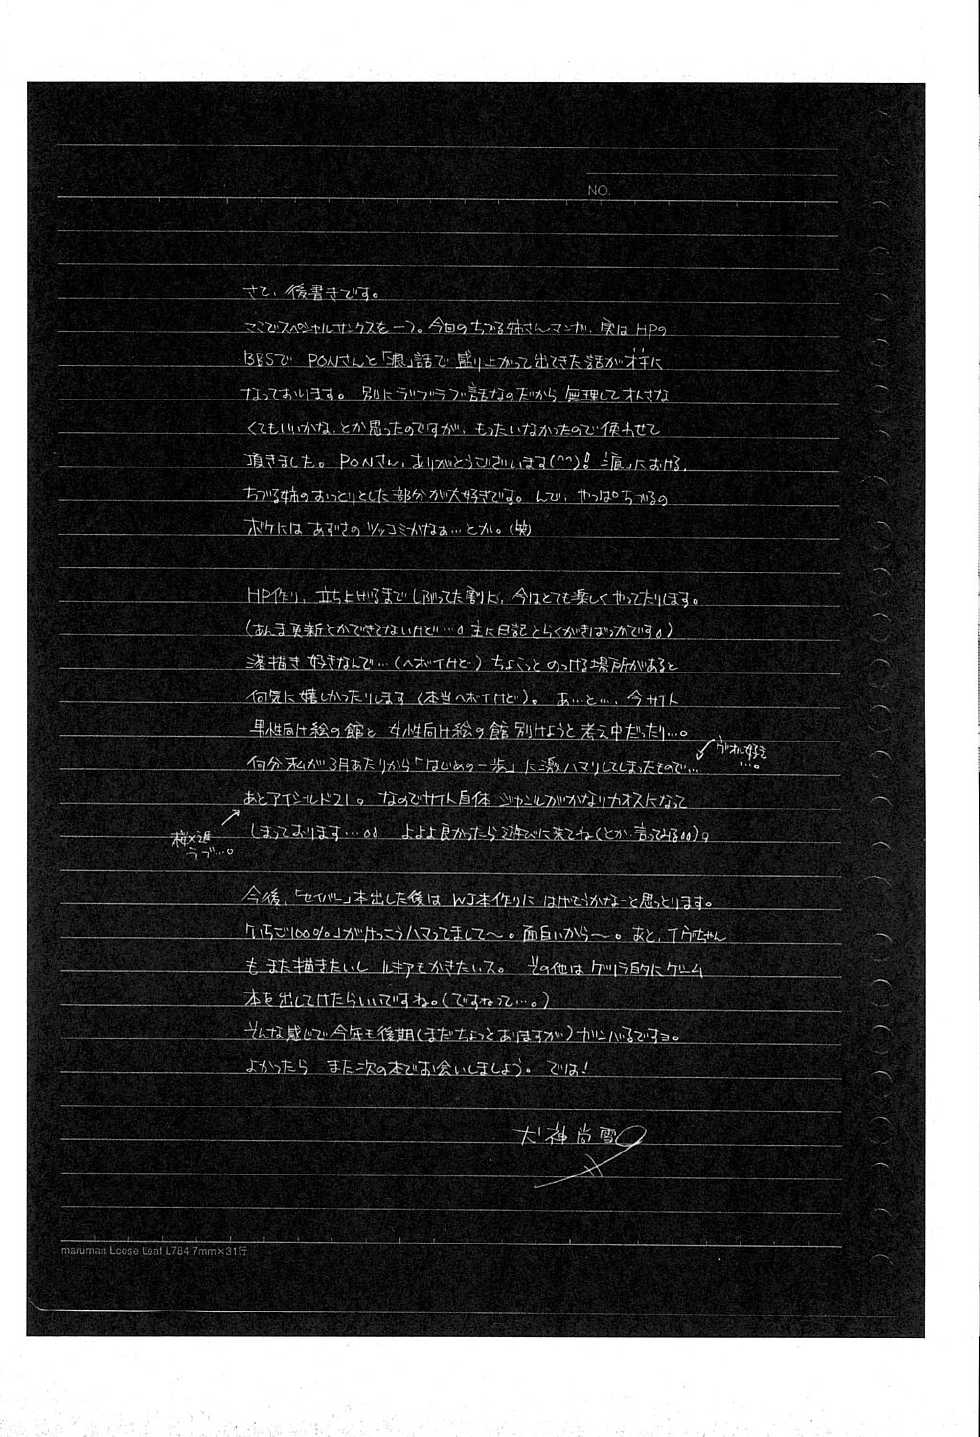 NO.
さて、後書きです。
ここでスペシャルサンクスを一つ。今回のちづる姉さんマンガ、実はHPの
BBSで PONさんと「痕」話で盛り上がって出てきた話がオチに
なっております。 別にラブラブ話なのだから 無理してオトさな
くてもいいかな、とか思ったのですが、もったいなかったので使わせて
頂きました。PONさん、ありがとうございます(^^)! 「痕」における、
ちづる姉のおっとりとした部分が大好きです。んで、やっぱちづるの
ボケには あずさの ツッコミかなぁ…とか。(笑)
HP作り、立ち上げるまでしぶってた割に、今はとても楽しくやってたりします。
(あんま更新とかできてないけど…。主に日記とらくがきばっかです。)
落描き好きなんで…(ヘボイけど) ちょこっと のっける場所があると
何気に嬉しかったりします(本当ヘボイけど)。 あ…と…、今サイト
男性向け絵の館と 女性向け絵の館 別けようと考え中だったり…。
何分私が3月あたりから「はじめの一歩」に激ハマリしてしまったもので…
あとアイシールド21。 なのでサイト自体 ジャンルがかなりカオスになって
桜×進
ラブ…。
しまっております…。 よよよ良かったら遊びに来てね(とか言ってみる)。
今後、「セイバー」本出した後は WJ本作りに はげもうかなーと思っとります。
「いちご100%」がけっこうハマってまして〜。面白いから〜。あと、イヴちゃん
もまた描きたいし ルキアもかきたいス。 その他は ゲリラ的にゲーム
本を出してけたらいいですね。(ですねって…。)
そんな感じで今年も後期(まだちょっとありますが)ガンバるですヨ。
よかったら また次の本でお会いしましょう。 では!
犬神尚雪
maruman Loose Leaf L784 7mm×31行